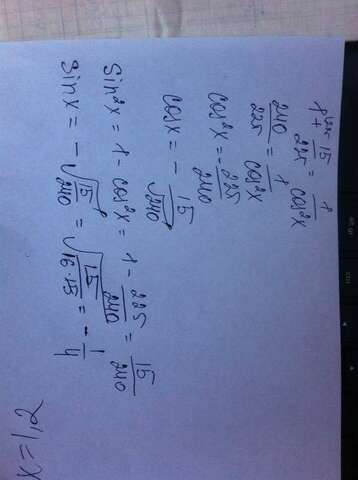 1 + 15/225 = 1/cos²x
240/225 = 1/cos²x
cos²x = 225/240
cosx = - 15/√240
sin²x = 1 - cos²x = 1 - 225/240 = 15/240
sinx = - √15/240 = √15/16·15 = - 1/4